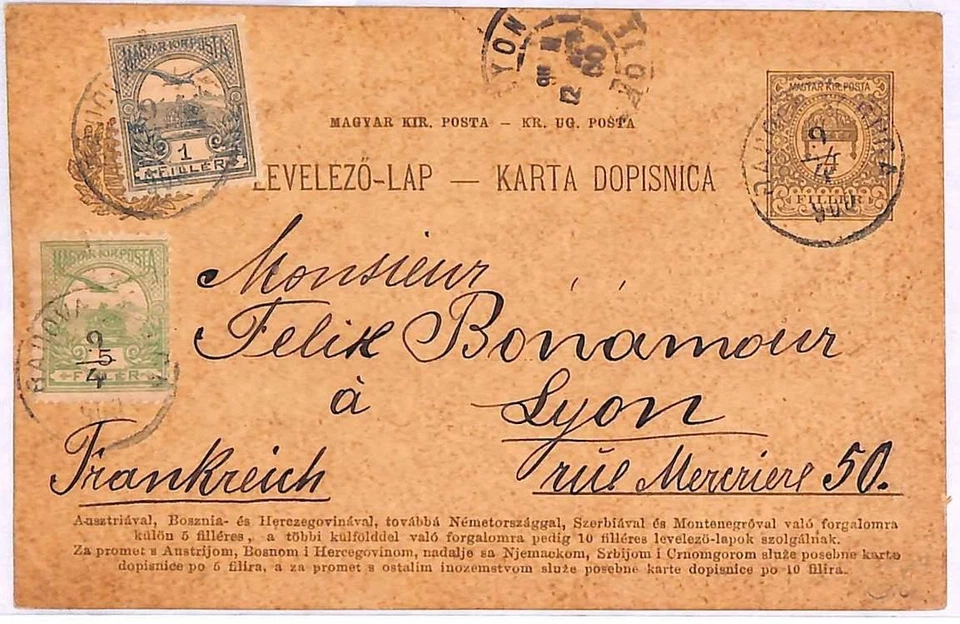 LYON
MAGYAR KIR. POSTA
1
FILLÉR
MAGYAR KIR. POSTA – KR. UG. POŠTA
MAGYAR KIR. POSTA
FILLÉR
9
4
900
LEVELEZŐ-LAP — KARTA DOPISNICA
MAGYAR KIR. POSTA
5
FILLÉR
9
4
Monsieur
Felix Bonámour
à Lyon
Frankreich rue Merciere 50.
Ausztriával, Bosznia- és Herczegovinával, továbbá Németországgal, Szerbiával és Montenegróval való forgalomra
külön 5 filléres, a többi külfölddel való forgalomra pedig 10 filléres levelező-lapok szolgálnak.
Za promet s Austrijom, Bosnom i Hercegovinom, nadalje sa Njemačkom, Srbijom i Crnomgorom služe posebne karte
dopisnice po 5 filira, a za promet s ostalim inozemstvom služe posebne karte dopisnice po 10 filira.